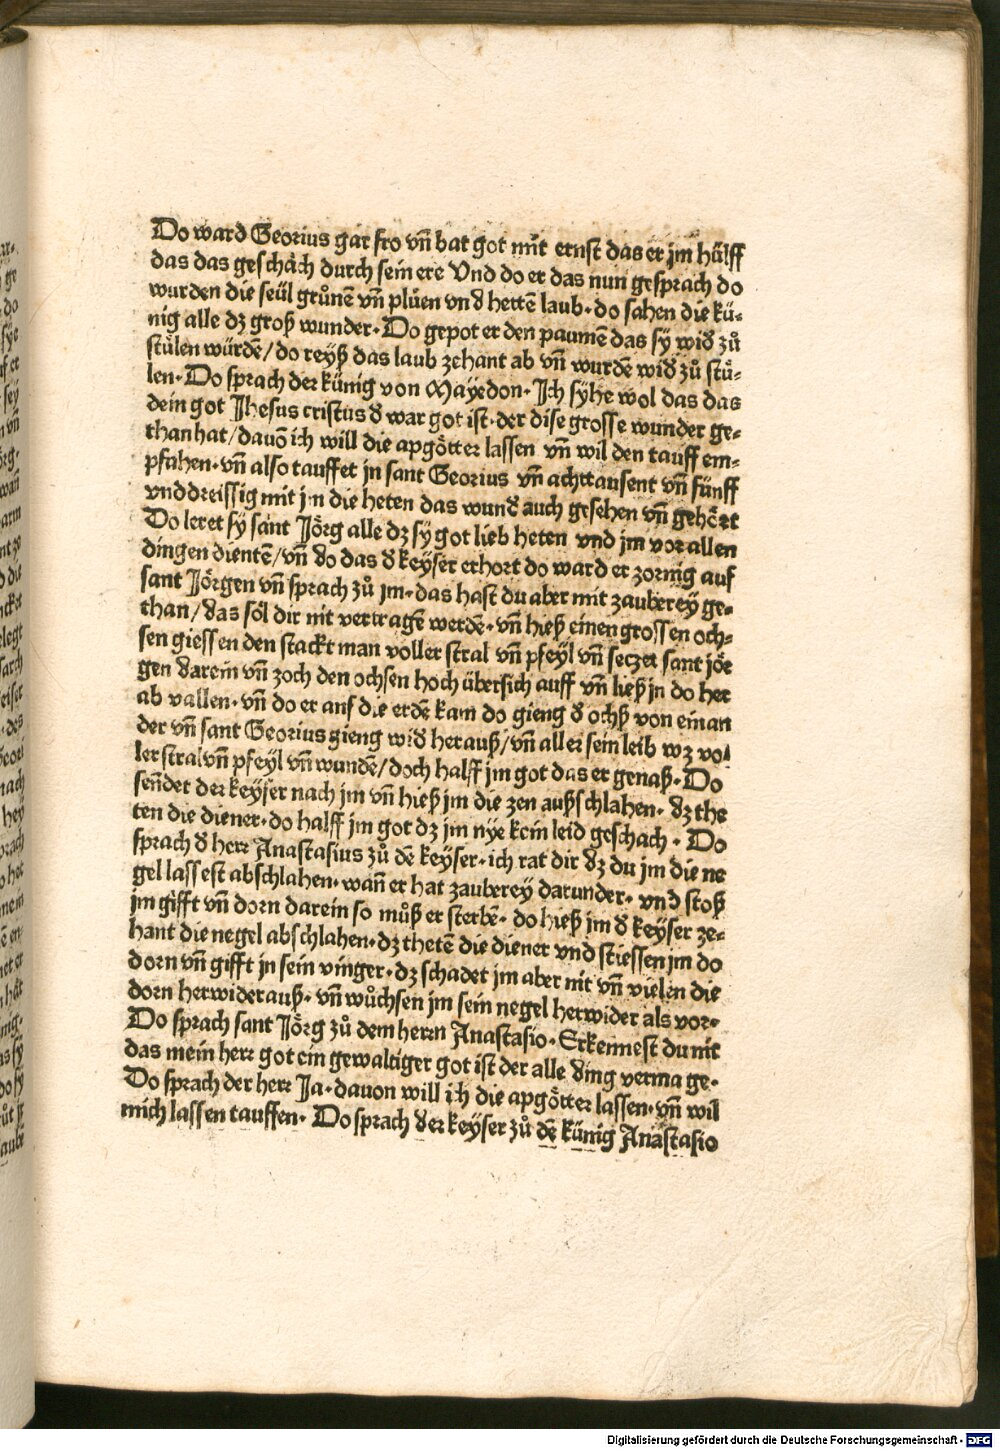 Do ward Georius gar fro vn̄ bat got mit ernst das er jm hälff
das das geschäch durch sein ere Vnd do er das nun gesprach do
wurden die seül grůnē vn̄ plüen vnd hettē laub· do sahen die kü-
nig alle dz groß wunder· Do gepot er den paumē das sy wid zů
stůlen würdē/ do reyß das laub zehant ab vn̄ wurdē wid zů stů-
len· Do sprach der künig von Mayedon· Ich syhe wol das das
dein got Jhesus cristus d war got ist· der dise grosse wunder ge-
than hat/ dauō ich will die apgötter lassen vn̄ wil den tauff em-
pfahen· vn̄ also tauffet jn sant Georius vn̄ achttausent vn̄ fünff
vnd dreissig mit jn die heten das wund auch gesehen vn̄ gehört
Do leret sy sant Jörg alle dz sy got lieb heten vnd jm vor allen
dingen dientē/ vn̄ do das d keyser erhort do ward er zornig auf
sant Jörgen vn̄ sprach zů jm· das hast du aber mit zauberey ge-
than/ das sol dir nit vertragē werdē· vn̄ hieß einen grossen och-
sen giessen den stackt man voller stral vn̄ pfeyl vn̄ seczet sant jör
gen darein vn̄ zoch den ochsen hoch übersich auff vn̄ ließ jn do her
ab vallen· vn̄ do er auf die erdē kam do gieng d ochß von einan
der vn̄ sant Georius gieng wid herauß/ vn̄ aller sein leib wz vol
ler stral vn̄ pfeyl vn̄ wundē/ doch halff jm got das er genaß· Do
sendet der keyser nach jm vn̄ hieß jm die zen außschlahen· dz the
ten die diener· do halff jm got dz jm nye kein leid geschach· Do
sprach d herr Anastasius zů dē keyser· ich rat dir dz du jm die ne
gel lassest abschlahen· wan̄ er hat zauberey darunder· vnd stoß
im gifft vn̄ dorn darein so můß er sterbē· do hieß jm d keyser ze-
hant die negel abschlahen· dz thetē die diener vnd stiessen jm do
dorn vn̄ gifft jn sein vinger· dz schadet jm aber nit vn̄ vielen die
dorn herwiderauß· vn̄ wůchsen jm sein negel herwider als vor·
Do sprach sant Jörg zů dem herrn Anastasio· Erkennest du nit
das mein herr got ein gewaltiger got ist der alle ding vermage·
Do sprach der herr Ja· dauon will ich die apgötter lassen· vn̄ wil
mich lassen tauffen· Do sprach der keyser zů dē künig Anastasio
Digitalisierung gefördert durch die Deutsche Forschungsgemeinschaft - DFG